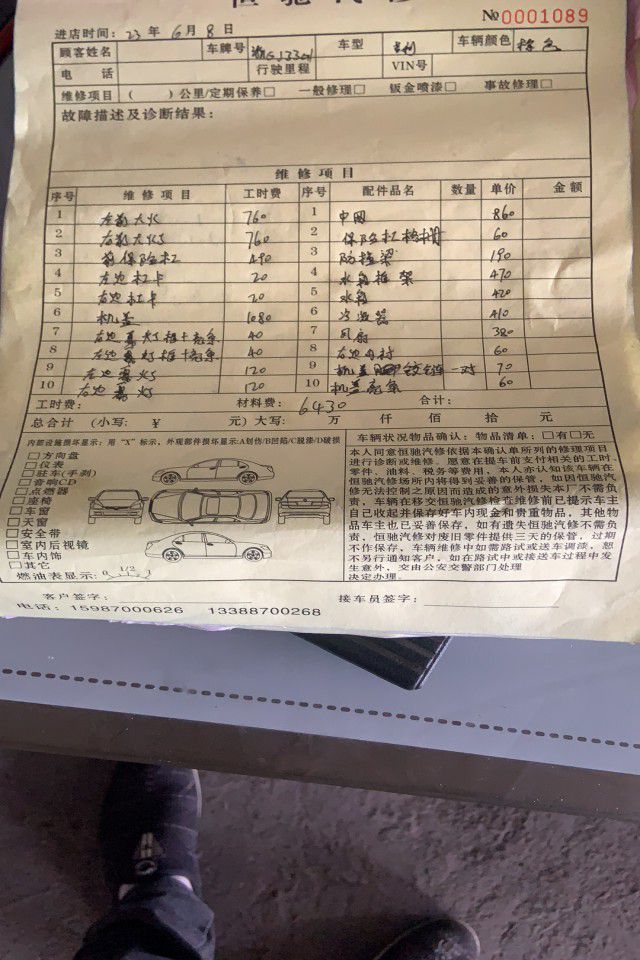 恒驰汽修
№0001089
进店时间：23 年 6 月 8 日
顾客姓名 车牌号 车型 车辆颜色 棕色
电 话 行驶里程 VIN号
维修项目 （ ）公里/定期保养□ 一般修理□ 钣金喷漆□ 事故修理□
故障描述及诊断结果：
维 修 项 目
序号 维 修 项 目 工时费 序号 配件品名 数量 单价 金额
1 左前大灯 760 1 中网 860
2 右前大灯 760 2 保险杠格栅 60
3 前保险杠 490 3 防撞梁 190
4 左边杠卡 20 4 水箱框架 470
5 右边杠卡 20 5 水箱 420
6 机盖 1080 6 冷凝器 410
7 左边雾灯框+亮条 40 7 风扇 380
8 右边雾灯框+亮条 40 8 右边内衬 60
9 左边雾灯 120 9 机盖 铰链一对 70
10 右边雾灯 120 10 机盖亮条 60
工时费： 材料费： 6430 合计：
总合计 （小写： ￥ 元）大写： 万 仟 佰 拾 元
内部设施损坏显示：用“X”标示，外观部件损坏显示：A划伤/B凹陷/C脱漆/D破损
□方向盘
□仪表
□驻车(手刹)
□音响CD
□点烟器
□座椅
□车窗
□天窗
□安全带
□室内后视镜
□车内饰
□其它
燃油表显示: 0 1/2 1
车辆状况物品确认：物品清单：□有□无
本人同意恒驰汽修依据本确认单所列的修理项目
进行诊断或维修。愿意在提车前支付相关的工时、
零件、油料、税务等费用。本人亦认知该车辆在
恒驰汽修场所内将得到妥善的保管，如因恒驰汽
修无法控制之原因而造成的意外损失本厂不需负
责，车辆在移交恒驰汽修检查维修前已提示车主
自己收起并保存好车内现金和贵重物品，其他物
品车主也已妥善保存，如有遗失恒驰汽修不需负
责，恒驰汽修对废旧零件提供三天的保管，过期
不作保存，车辆维修中如需路试或送车调漆，恕
不另行通知客户，如在路试中或接送车过程中发
生意外，交由公安交警部门处理
决定办理。
客户签字： 接车员签字：
电话：15987000626 13388700268